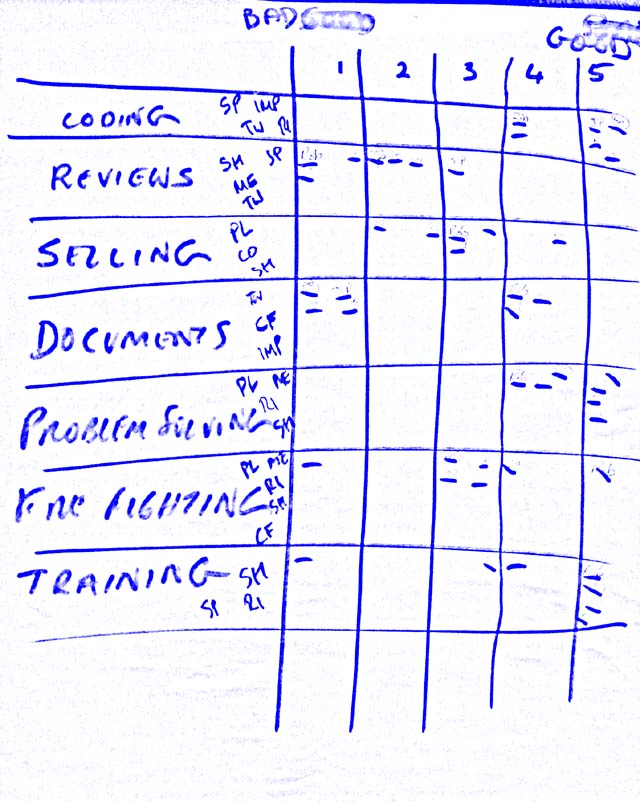 BAD
GOOD
1 2 3 4 5
CODING SP IMP
TW RI
REVIEWS SH SP
ME
TW
SELLING PL
CO
SH
DOCUMENTS TW
CF
IMP
PROBLEM SOLVING PL ME
RI
SH
FIRE FIGHTING PL ME
RI
SH
CF
TRAINING SH
SP RI